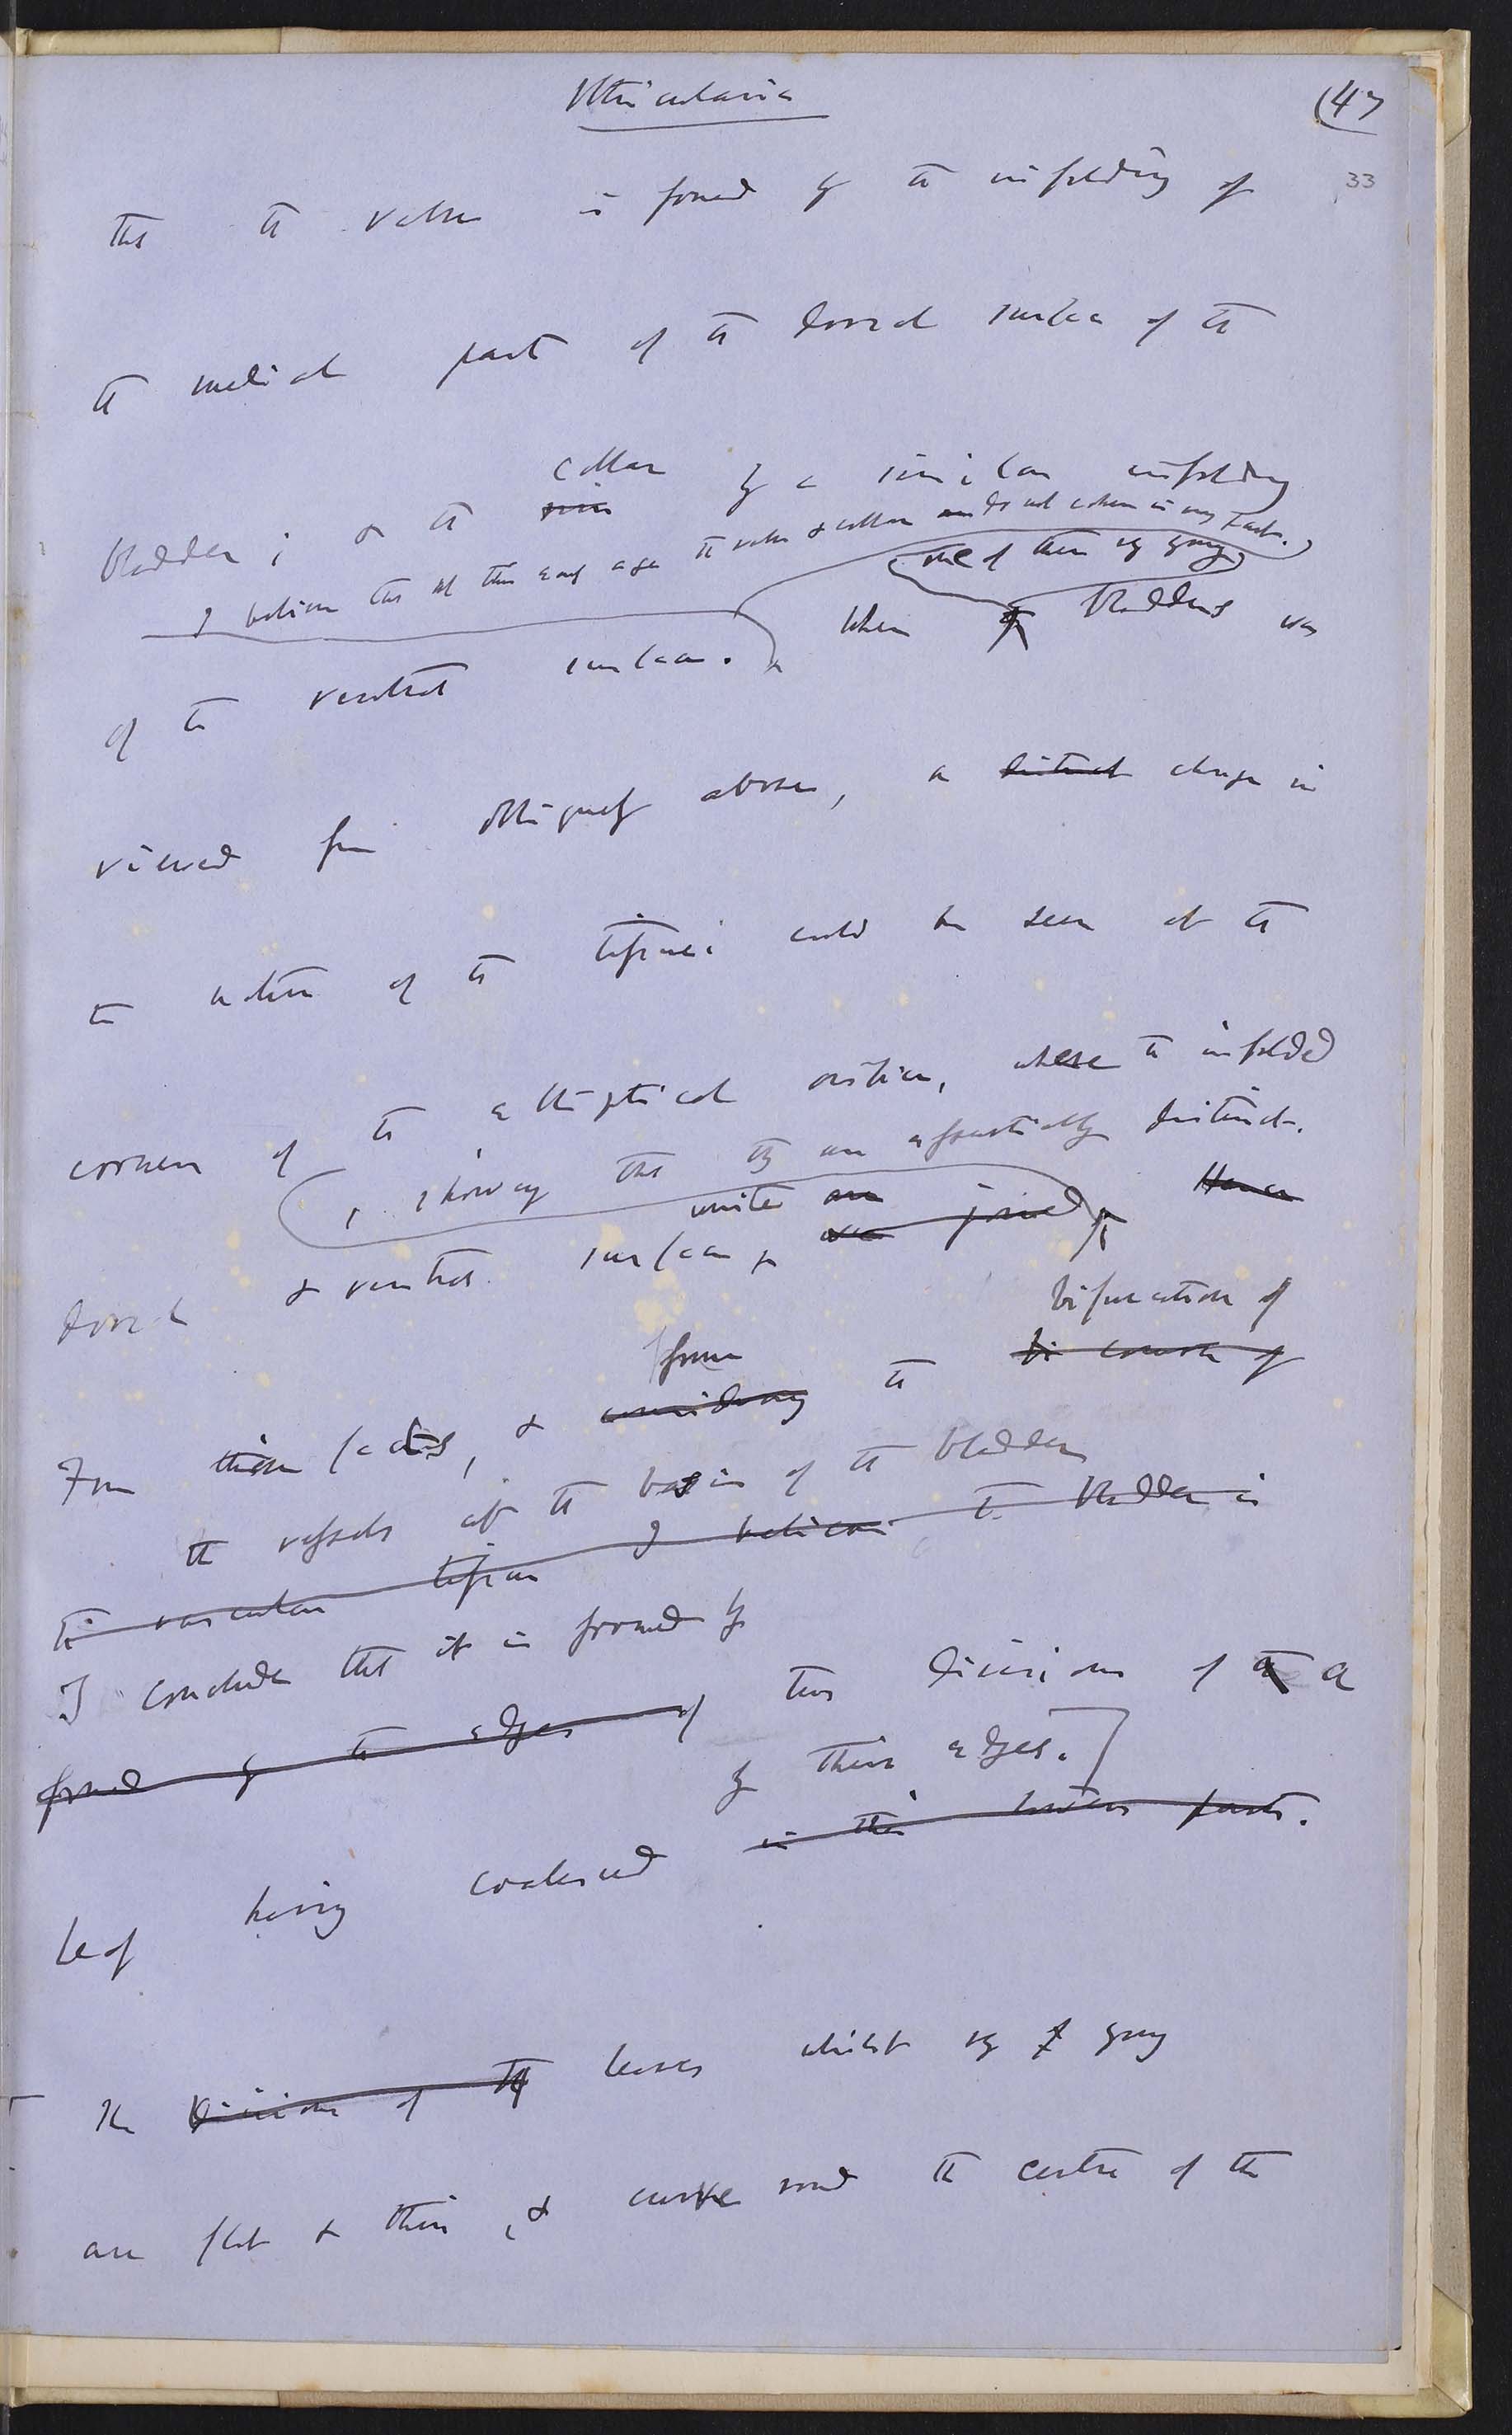 Utricularia
(47
33
that the valve is formed by the infolding of
the medial part of the dorsal surface of the
collar by a similar infolding
bladder; & the rim
I believe that at this early age the valve & collar do not cohere in any part.)
one of these vy young
of the ventral surface. When the bladders was
viewed from obliquely above, a distinct change in
the nature of the tissues could be seen at the
corners of the elliptical orifice, where the infolded
, showing that they are essentially distinct.
unite are
dorsal & ventral surfaces are joined, Hence
bifurcation of
from
From these facts, & considering the course of
the vessels at the basis of the bladder
the vascular tissue I believe the bladder is
I conclude that it is formed by
formed by the edges of two divisions of the a
by their edges.]
leaf having coalesced in their lower parts.
The divisions of the leaves whilst vy young
are flat & thin, & curve round the centre of the